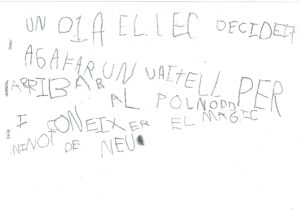 UN D1A EL LEC DECIDEIT
AGAFAR UN VAITELL PER
ARRIBAR AL POLNODD
I CONEIXER EL MAGIC
NINOT DE NEU